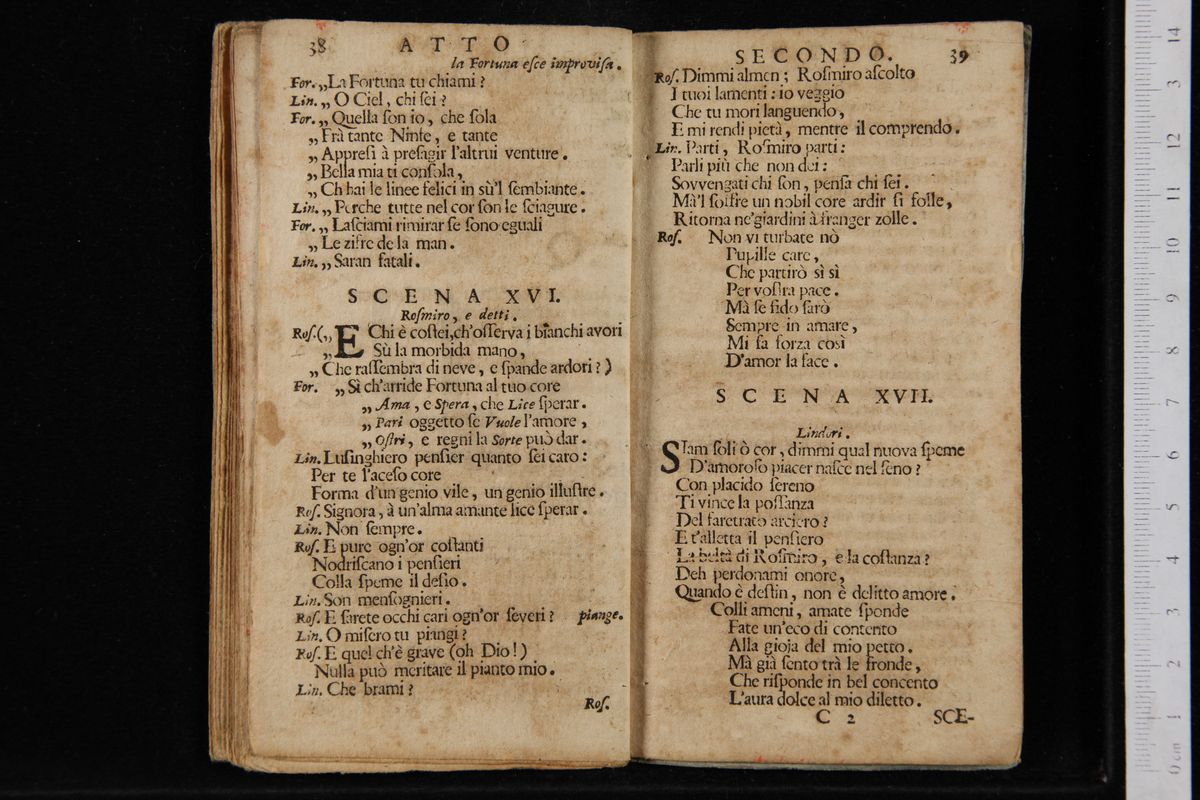 38 ATTO
la Fortuna eſce improviſa.
For. „La Fortuna tu chiami?
Lin. „ O Ciel, chi ſei?
For. „ Quella ſon io, che ſola
„ Frà tante Ninfe, e tante
„ Appreſi à preſagir l'altrui venture.
„ Bella mia ti conſola,
„ Ch hai le linee felici in sù'l ſembiante.
Lin. „ Perche tutte nel cor ſon le ſciagure.
For. „ Laſciami rimirar ſe ſono eguali
„ Le zifre de la man.
Lin. „ Saran fatali.
SCENA XVI.
Roſmiro, e detti.
Roſ. („ E Chi è coſtei, ch'oſſerva i bianchi avori
„ Sù la morbida mano,
„ Che raſſembra di neve, e ſpande ardori?)
For. „ Sì ch'arride Fortuna al tuo core
„ Ama, e Spera, che Lice ſperar.
„ Pari oggetto ſe Vuole l'amore,
„ Oſtri, e regni la Sorte può dar.
Lin. Luſinghiero penſier quanto ſei caro:
Per te l'aceſo core
Forma d'un genio vile, un genio illuſtre.
Roſ. Signora, à un'alma amante lice ſperar.
Lin. Non ſempre.
Roſ. E pure ogn'or coſtanti
Nodriſcano i penſieri
Colla ſpeme il deſio.
Lin. Son menſognieri.
Roſ. E ſarete occhi cari ogn'or ſeveri? piange.
Lin. O miſero tu piangi?
Roſ. E quel ch'è grave (oh Dio!)
Nulla può meritare il pianto mio.
Lin. Che brami?
Roſ.
SECONDO. 39
Roſ. Dimmi almen; Roſmiro aſcolto
I tuoi lamenti: io veggio
Che tu mori languendo,
E mi rendi pietà, mentre il comprendo.
Lin. Parti, Roſmiro parti:
Parli più che non dei:
Sovvengati chi ſon, penſa chi ſei.
Mà'l ſoffre un nobil core ardir ſi folle,
Ritorna ne'giardini à franger zolle.
Roſ. Non vi turbate nò
Pupille care,
Che partirò sì sì
Per voſtra pace.
Mà ſe fido ſarò
Sempre in amare,
Mi fa forza così
D'amor la face.
SCENA XVII.
Lindori.
SIam ſoli ò cor, dimmi qual nuova ſpeme
D'amoroſo piacer naſce nel ſeno?
Con placido ſereno
Ti vince la poſſanza
Del faretrato arciero?
E t'alletta il penſiero
La beltà di Roſmiro, e la coſtanza?
Deh perdonami onore,
Quando è deſtin, non è delitto amore.
Colli ameni, amate ſponde
Fate un'eco di contento
Alla gioja del mio petto.
Mà già ſento trà le fronde,
Che riſponde in bel concento
L'aura dolce al mio diletto.
C 2 SCE-
0 cm 1 2 3 4 5 6 7 8 9 10 11 12 13 14